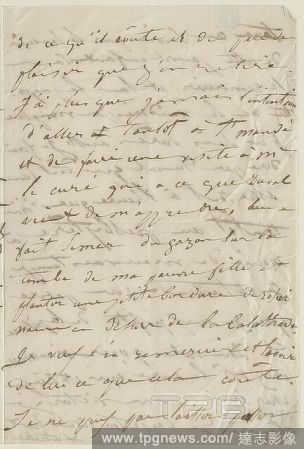 de ce qu'il coûte et du peu de
plaisir que j'en retire.
J'ai plus que jamais l'intention
d'aller tantôt à St Mandé
et de faire une visite à Mr
le curé qui, a ce que Duval
vient de m'apprendre,
fait semer du gazon sur la
tombe de ma pauvre fille et
planter une petite bordure de
Je veux l'en remercier et savoir
de lui ce que cela coûte.
Je ne puis pas
TPG
www.tpgnews.com/ 達志影像